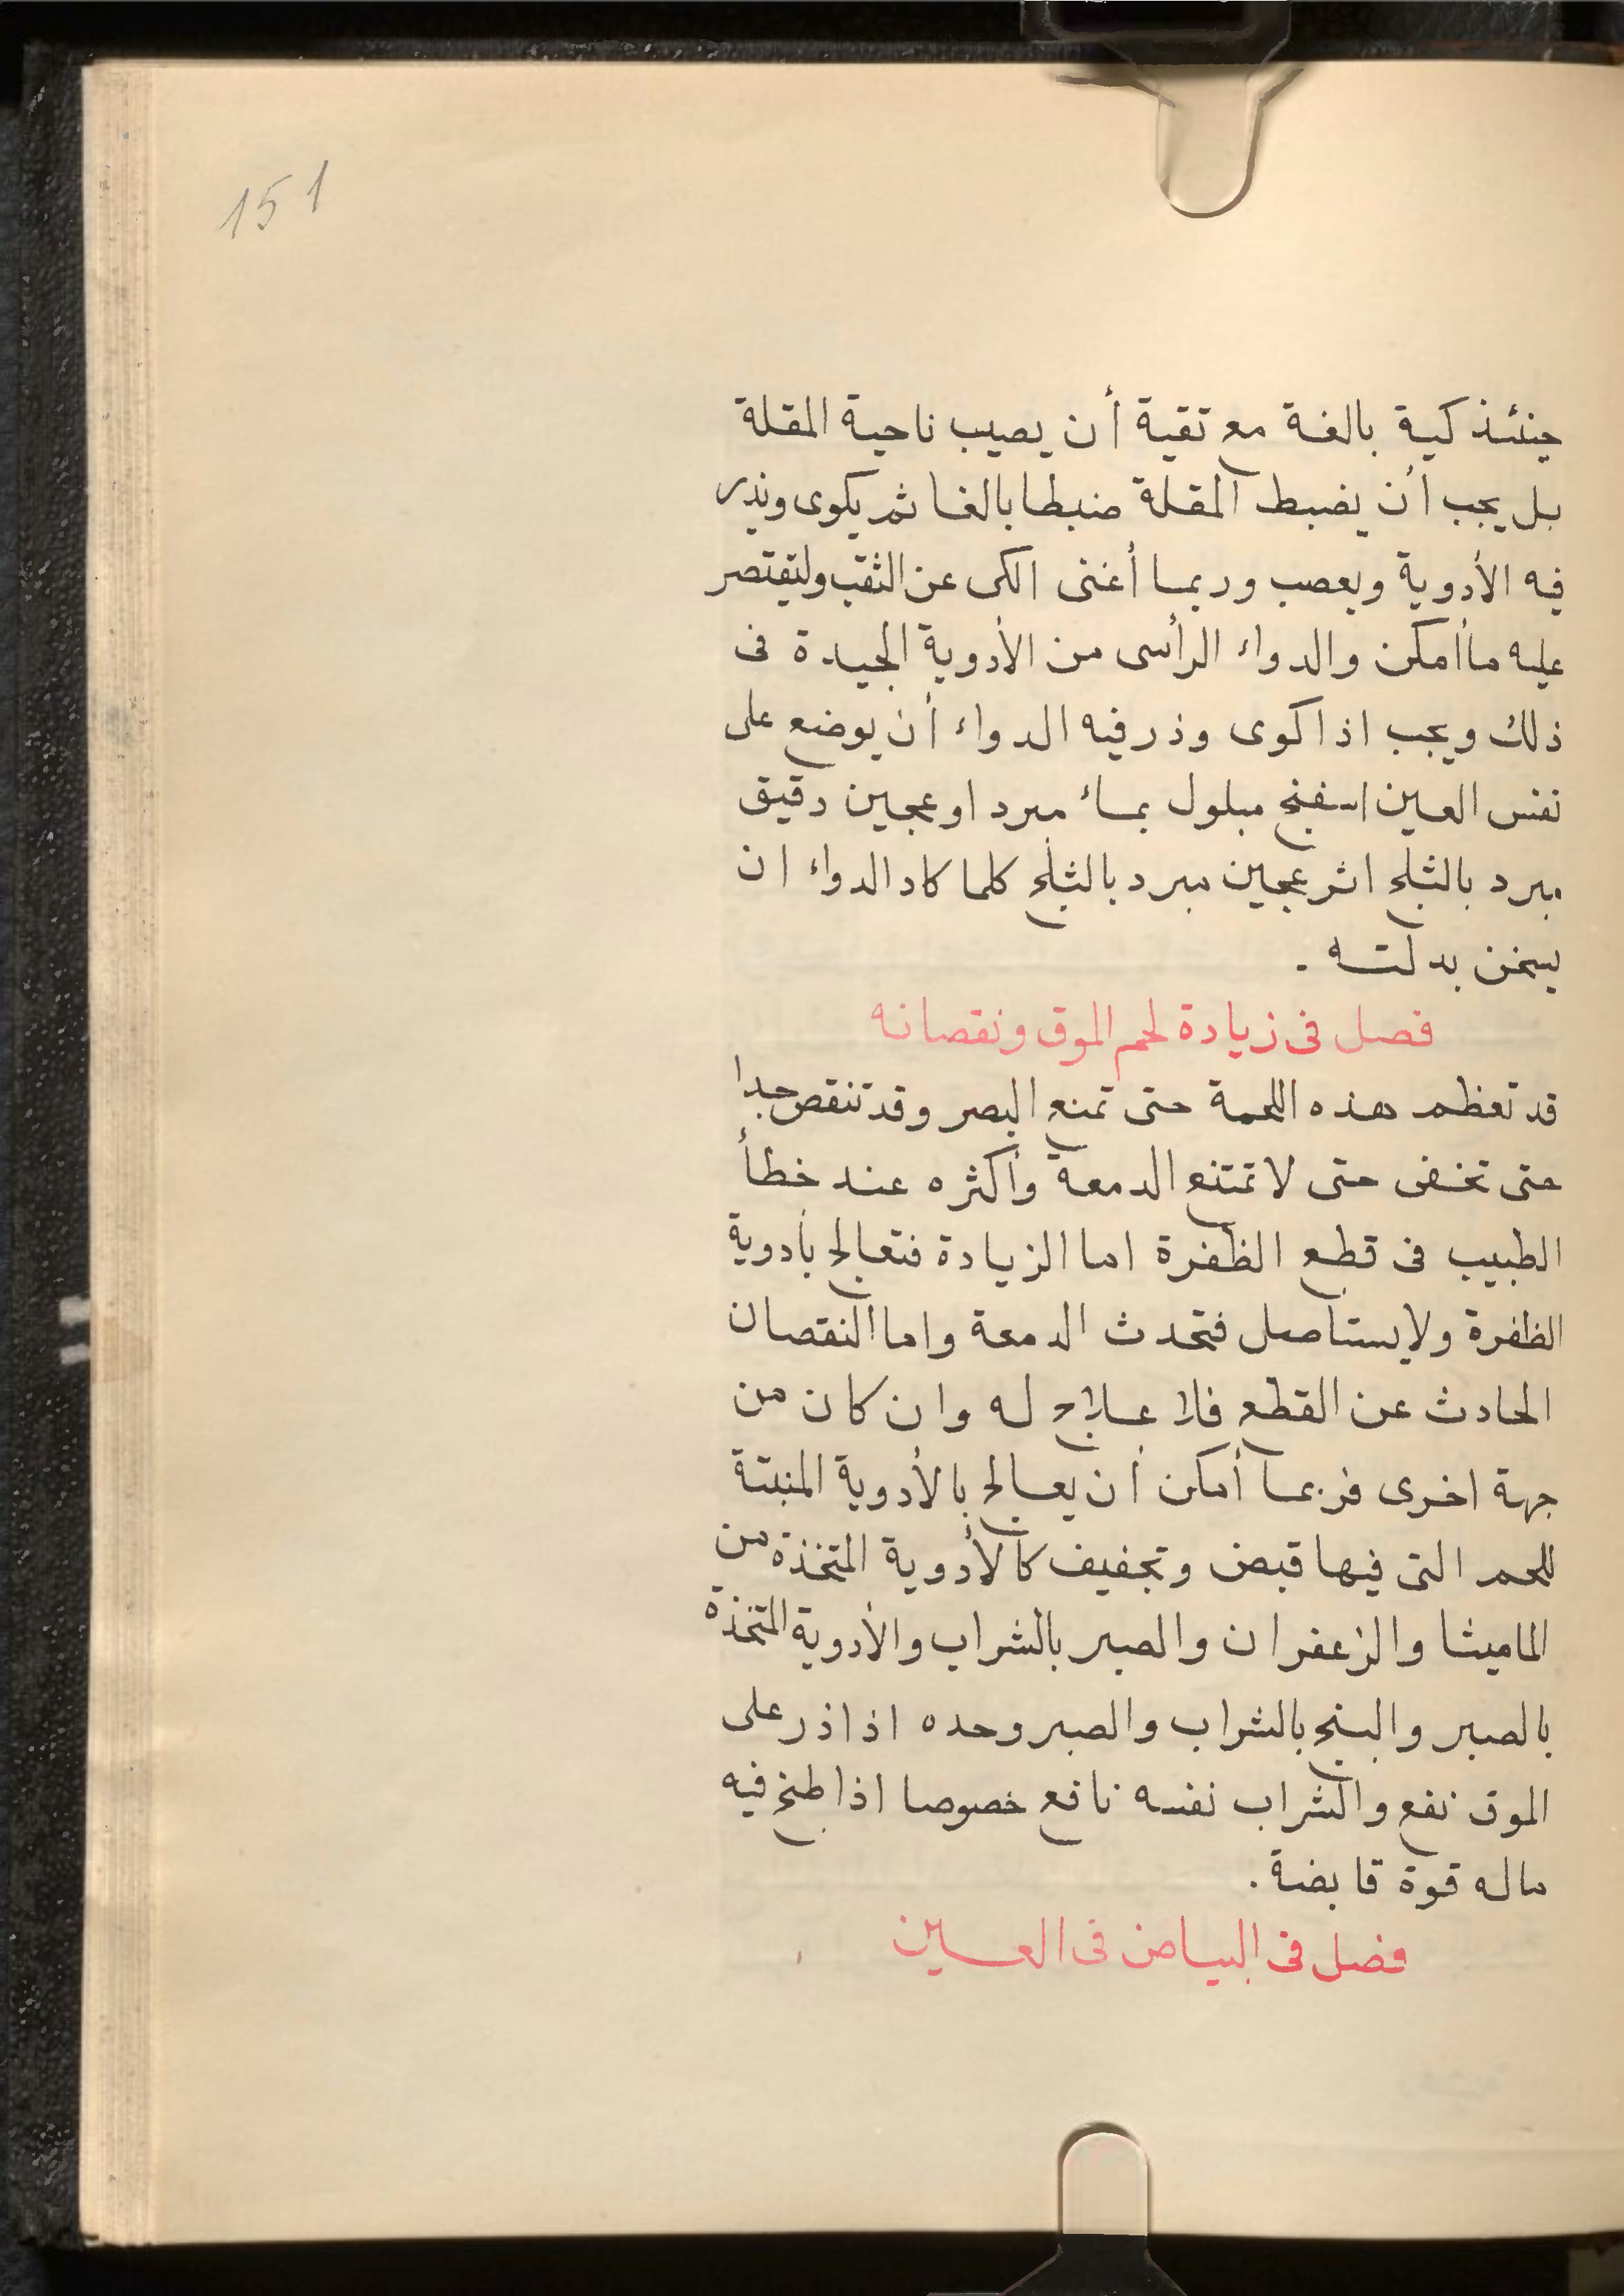 151
حينئذ كية بالغة مع تقية أن يصيب ناحية المقلة
بل يجب أن يضبط المقلة ضبطا بالغا ثم يكوى ويذر
فيه الأدوية ويعصب وربما أغنى الكى عن الثقب ولتقتصر
عليه ما أمكن والدواء الرأسى من الأدوية الجيدة فى
ذلك ويجب اذا كوى وذر فيه الدواء أن يوضع على
نفس العين اسفنج مبلول بماء مبرد او عجين دقيق
مبرد بالثلج اثر عجين مبرد بالثلج كلما كاد الدواء ان
يسخن بدلته .
فصل فى زيادة لحم الموق ونقصانه
قد تعظم هذه اللحمة حتى تمنع البصر وقد تنقص جدا
حتى تخفى حتى لا تمتنع الدمعة وأكثره عند خطأ
الطبيب فى قطع الظفرة اما الزيادة فتعالج بأدوية
الظفرة ولا يستاصل فتحدث الدمعة واما النقصان
الحادث عن القطع فلا علاج له وان كان من
جهة اخرى فربما أمكن أن يعالج بالأدوية المنبتة
للحم التى فيها قبض وتجفيف كالأدوية المتخذة من
الماميثا والزعفران والصبر بالشراب والأدوية المتخذة
بالصبر والبنج بالشراب والصبر وحده اذا ذر على
الموق نفع والشراب نفسه نافع خصوصا اذا طبخ فيه
ماله قوة قابضة .
فصل فى البياض فى العين